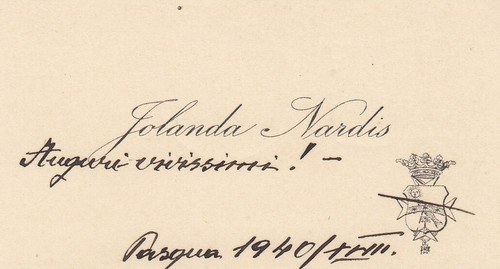 Jolanda Nardis
Auguri vivissimi! –
Pasqua 1940/XVIII.